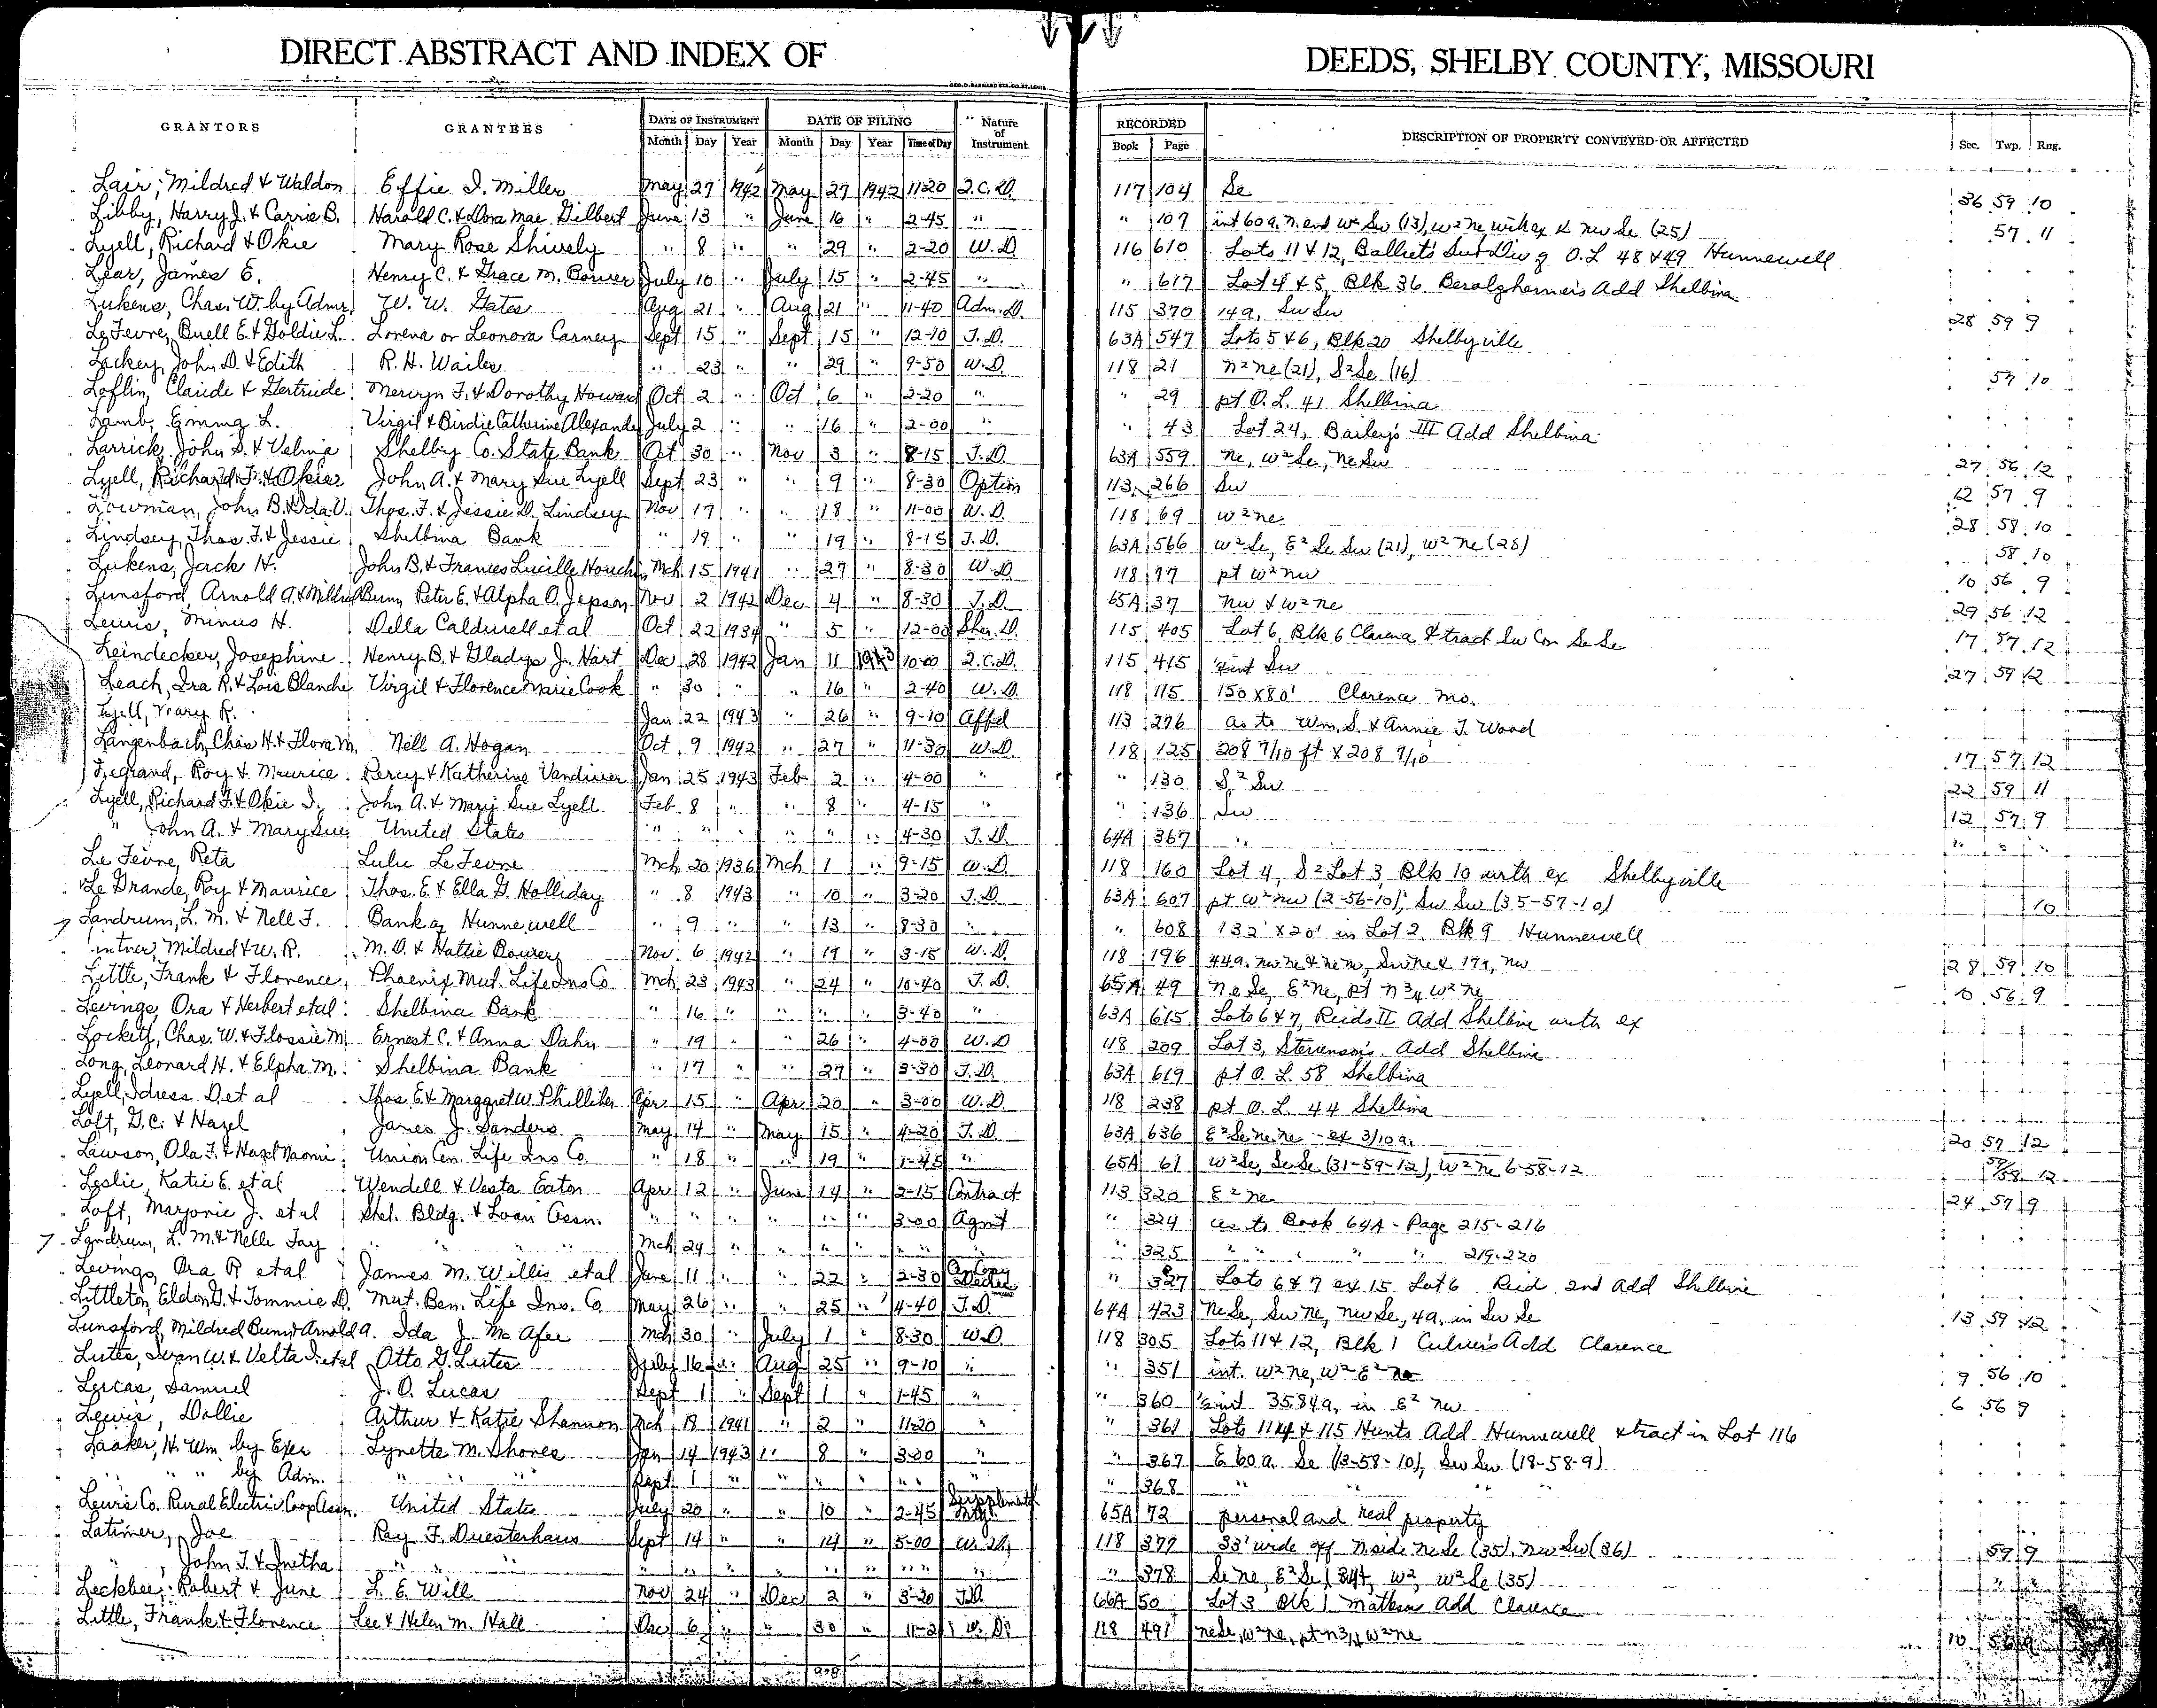 DIRECT ABSTRACT AND INDEX OF DEEDS, SHELBY COUNTY, MISSOURI
GRANTORS GRANTEES DATE OF INSTRUMENT DATE OF FILING Nature of Instrument RECORDED DESCRIPTION OF PROPERTY CONVEYED OR AFFECTED Sec. Twp. Rng.
Month Day Year Month Day Year Time of Day Book Page
Lair, Mildred & Waldon Effie I. Miller May 27 1942 May 27 1942 11-20 Q.C.D. 117 104 Se 36 59 10
Libby, Harry J. & Carrie B. Harold C. & Dora Mae Gilbert June 13 " June 16 " 2-45 " " 107 int 60 a. N. end W² Sw (13), W² Ne with ex & Nw Se (25) 57 11
Lyell, Richard & Okie Mary Rose Shively " 8 " " 29 " 2-20 W.D. 116 610 Lots 11 & 12, Balliet's Sub Div of O.L 48 & 49 Hunnewell
Lear, James E. Henry C. & Grace M. Bower July 10 " July 15 " 2-45 " " 617 Lot 4 & 5, Blk 36 Add Shelbina
Lukens, Chas. W. by Admr W. W. Gates Aug 21 " Aug 21 " 11-40 Adm. D. 115 370 14a, Sw Sw 28 59 9
LeFevre, Buell E. & Goldie L. Lorena or Leonora Carney Sept 15 " Sept 15 " 12-10 T.D. 63A 547 Lots 5 & 6, Blk 20 Shelbyville
Lickey, John D. & Edith R. H. Wailes " 23 " " 29 " 9-50 W.D. 118 21 N² Ne (21), S² Se (16) 57 10
Loflin, Claude & Gertrude Mervyn F. & Dorothy Howard Oct 2 " Oct 6 " 2-20 " " 29 pt O. L. 41 Shelbina
Lamb, Emma L. Virgil & Birdie Catherine Alexander July 2 " " 16 " 2-00 " " 43 Lot 24, Bailey's III Add Shelbina
Larrick, John S. & Velma Shelby Co. State Bank Oct 30 " Nov 3 " 8-15 T.D. 63A 559 Ne, W² Se, Ne Sw 27 56 12
Lyell, Richard F. & Okie John A. & Mary Sue Lyell Sept 23 " " 9 " 8-30 Option 113 266 Sw 12 57 9
Lowman, John B. & Ida V. Thos. F. & Jessie D. Lindsey Nov 17 " " 18 " 11-00 W.D. 118 69 W² Ne 28 58 10
Lindsey, Thos. F. & Jessie Shelbina Bank " 19 " " 19 " 8-15 T.D. 63A 566 W² Se, E² Se Sw (21), W² Ne (28) 58 10
Lukens, Jack H. John B. & Frances Lucille Houchin Mch 15 1941 " 27 " 8-30 W.D. 118 77 pt W² Nw 10 56 9
Lunsford, Arnold A. & Mildred Bunn Peter E. & Alpha O. Jepson Nov 2 1942 Dec 4 " 8-30 T.D. 65A 37 Nw & W² Ne 29 56 12
Lewis, Minus H. Della Caldwell et al Oct 22 1934 " 5 " 12-00 Sher. D. 115 405 Lot 6, Blk 6 Clarence & tract Sw Cor Se Se 17 57 12
Leindecker, Josephine Henry B. & Gladys J. Hart Dec 28 1942 Jan 11 1943 10-00 Q.C.D. 115 415 int Sw 27 59 12
Leach, Ira R. & Lois Blanche Virgil & Florence Marie Cook " 30 " " 16 " 2-40 W.D. 118 115 150 x 80' Clarence Mo.
Lyell, Mary R. Jan 22 1943 " 26 " 9-10 Affd 113 296 as to Wm. S. & Annie T. Wood
Langenbach, Chas H. & Flora M. Nell A. Hogan Oct 9 1942 " 27 " 11-30 W.D. 118 125 208 7/10 ft x 208 7/10 17 57 12
Legrand, Roy & Maurice Percy & Katherine Vandiver Jan 25 1943 Feb 2 " 4-00 " " 130 S² Sw 22 59 11
Lyell, Richard F. & Okie I. John A. & Mary Sue Lyell Feb 8 " " 8 " 4-15 " " 136 Sw 12 57 9
" John A. & Mary Sue United States " " " " " " 4-30 T.D. 64A 367 " " " "
Le Fevre, Reta Lulu Le Fevre Mch 20 1936 Mch 1 " 9-15 W.D. 118 160 Lot 4, S² Lot 3, Blk 10 with ex Shelbyville
Le Grande, Roy & Maurice Thos. E. & Ella G. Holliday " 8 1943 " 10 " 3-20 T.D. 63A 607 pt W² Nw (2-56-10), Sw Sw (35-57-10) 10
Landrum, L. M. & Nell F. Bank of Hunnewell " 9 " " 13 " 8-30 " " 608 132' x 20' in Lot 2, Blk 9 Hunnewell
intner, Mildred & W. R. M. O. & Hattie Bower Nov. 6 1942 " 19 " 3-15 W.D. 118 196 44a. Nw Ne & Sw Ne & 17a, Nw 28 59 10
Little, Frank & Florence Phoenix Mut. Life Ins Co Mch 23 1943 " 24 " 10-40 T.D. 65A 49 Ne Se, E² Ne, pt N 3/4 W² Ne 10 56 9
Levings, Ora & Herbert et al Shelbina Bank " 16 " " " " 3-40 " 63A 615 Lots 6 & 7, Reids II Add Shelbina with ex
Lockett, Chas. W. & Flossie M. Ernest C. & Anna Dahn " 19 " " 26 " 4-00 W.D 118 209 Lot 3, Stevenson's Add Shelbina
Long, Leonard H. & Elpha M. Shelbina Bank " 17 " " 27 " 3-30 T.D. 63A 619 pt O. L. 58 Shelbina
Lyell, Idress D. et al Thos E. & Margaret W. Phillips Apr 15 " Apr 20 " 3-00 W.D. 118 238 pt O. L. 44 Shelbina
Loft, G.C. & Hazel James J. Sanders May 14 " May 15 " 4-20 T.D. 63A 636 E² Se Ne Ne - ex 3/10 a. 20 57 12
Lawson, Ola F. & Hazel Naomi Union Cen. Life Ins Co. " 18 " " 19 " 1-45 " 65A 61 W² Se, Se Se (31-59-12), W² Ne 6-58-12 59/58 12
Leslie, Katie E. et al Wendell & Vesta Eaton Apr 12 " June 14 " 2-15 Contract 113 320 E² Ne 24 57 9
Loft, Marjorie J. et al Shel. Bldg. & Loan Assn. " " " " " " 3-00 Agmt " 324 as to Book 64A - Page 215-216
Landrum, L. M. & Nelle Fay " " " Mch 24 " " " " " " " 325 " " " " 219-220
Levings, Ora R et al James M. Willis et al June 11 " " 22 " 2-30 Cer Copy Decree " 327 Lots 6 & 7 ex 15 Lot 6 Reid 2nd Add Shelbina
Littleton, Eldon G. & Tommie D. Mut. Ben. Life Ins. Co. May 26 " " 25 " 4-40 T.D. 64A 423 Ne Se, Sw Ne, Nw Se, 4a. in Sw Se 13 59 12
Lunsford, Mildred Bunn & Arnold A. Ida J. Mc Afee Mch 30 " July 1 " 8-30 W.D. 118 305 Lots 11 & 12, Blk 1 Culver's Add Clarence
Lutes, Ivan W. & Velta I. et al Otto G. Lutes July 16 " Aug 25 " 9-10 " " 351 int. W² Ne, W² E² Ne 9 56 10
Lucas, Samuel J. O. Lucas Sept 1 " Sept 1 " 1-45 " " 360 int 35.84a, in E² Nw 6 56 9
Lewis, Dollie Arthur & Katie Shannon Mch 18 1941 " 2 " 11-20 " " 361 Lots 114 & 115 Hunts Add Hunnewell & tract in Lot 116
Laaker, H. Wm. by Exer Lynette M. Shores Jan 14 1943 " 8 " 3-30 " " 367 E 60 a. Se (13-58-10), Sw Sw (18-58-9)
" " " by Adm. " " " Sept 1 " " " " " " " " 368 " " "
Lewis Co. Rural Electric Coop Assn. United States July 20 " " 10 " 2-45 Supplemental Mtg. 65A 72 personal and real property
Latimer, Joe Ray F. Duesterhaus Sept 14 " " 14 " 5-00 W.D. 118 377 33' wide off N side Ne Se (35), Nw Sw (36) 59 9
" John T. & Inetha " " " " " " " " " " " " " 378 Se Ne, E² Se (34), W², W² Se (35) " "
Leckbee, Robert & June L. E. Will Nov 24 " Dec 2 " 3-20 T.D. 66A 50 Lot 3 Blk 1 Add Clarence
Little, Frank & Florence Lee & Helen M. Hall Dec 6 " " 30 " W.D. 118 491 Ne Se, W² Ne, pt N 3/4 W² Ne 10 56 9